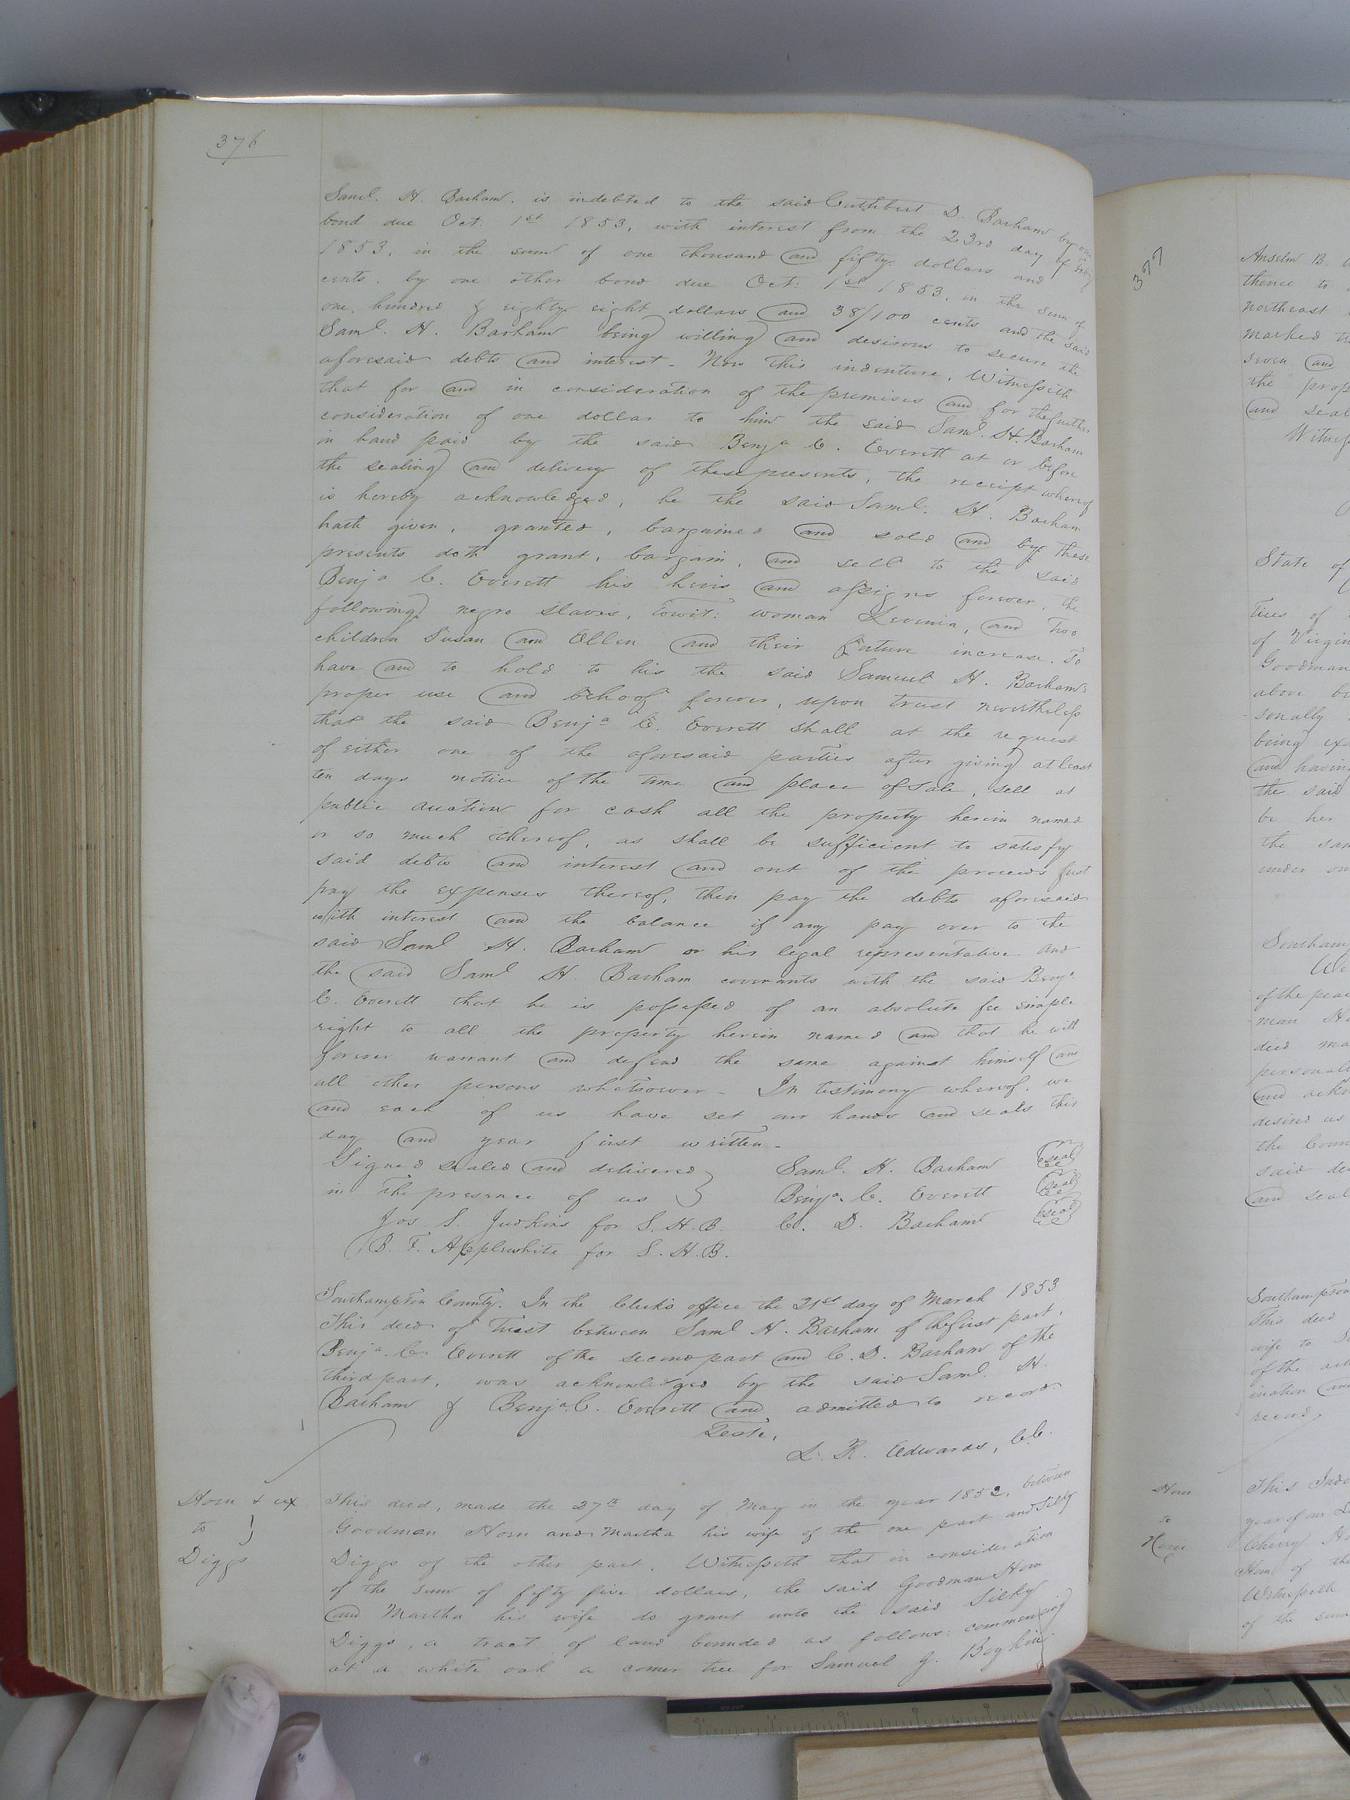 376
Saml. H. Barham, is indebted to the said Cuthbert D. Barham by one
bond due Oct. 1st 1853, with interest from the 23rd day of
1853, in the sum of one thousand and fifty dollars and
cents, by one other bond due Oct. 1st 1853, in the sum of
one hundred & eighty eight dollars and 38/100 cents and the said
Saml. H. Barham being willing and desirous to secure the
aforesaid debts and interest - Now this indenture, Witnesseth
that for and in consideration of the premises and for the further
consideration of one dollar to him the said Saml. H. Barham
in hand paid by the said Benja C. Everett at or before
the sealing and delivery of these presents, the receipt whereof
is hereby acknowledged, he the said Saml. H. Barham
hath given, granted, bargained and sold and by these
presents doth grant, bargain, and sell to the said
Benja C. Everett his heirs and assigns forever, the
following negro slaves, towit: woman Levinia, and two
children Susan and Ellen and their future increase. To
have and to hold to his the said Samuel H. Barhams
proper use and behoof forever, upon trust nevertheless
that the said Benja C. Everett shall at the request
of either one of the aforesaid parties after giving at least
ten days notice of the time and place of sale, sell at
public auction for cash all the property herein named
or so much thereof, as shall be sufficient to satisfy
said debts and interest and out of the proceeds first
pay the expenses thereof, then pay the debts aforesaid
with interest and the balance if any pay over to the
said Saml H. Barham or his legal representative and
the said Saml H. Barham covenants with the said Benja
C. Everett that he is possessed of an absolute fee simple
right to all the property herein named and that he will
forever warrant and defend the same against himself and
all other persons whatsoever - In testimony whereof, we
and each of us have set our hands and seals this
day and year first written -
Signed sealed and delivered } Saml. H. Barham seal
in the presence of us } Benja. C. Everett seal
Jos S. Judkins for S. H. B. C. D. Barham seal
B. F. Applewhite for S. H. B.
Southampton County. In the Clerk's office the 21st day of March 1853
This deed of Trust between Saml H. Barham of the first part,
Benja. C. Everett of the second part and C. D. Barham of the
third part, was acknowledged by the said Saml. H.
Barham & Benja. C. Everett and admitted to record
Teste,
L. R. Edwards, C.C.
Horn & ux
to }
Diggs
This deed, made the 27th day of May in the year 1852, between
Goodman Horn and Martha his wife of the one part and Silky
Diggs of the other part. Witnesseth that in consideration
of the sum of fifty five dollars, the said Goodman Horn
and Martha his wife do grant unto the said Silky
Diggs, a tract of land bounded as follows: commencing
at a white oak a corner tree for Samuel G. Boykin,
377
Anselm B.
thence to
northeast
marked
seven and
the
and seal
State of
of
Goodman
above
sonally
being
and having
the said
be her
the
under
Southamp
of the peace
man
deed
personall
and
desired us
the Coun
said
and seal
Southampton
This deed
wife to
of the
and
record,
Horn
to
This Inde
year of our
Cherry
Horn of the
Witnesseth
of the sum